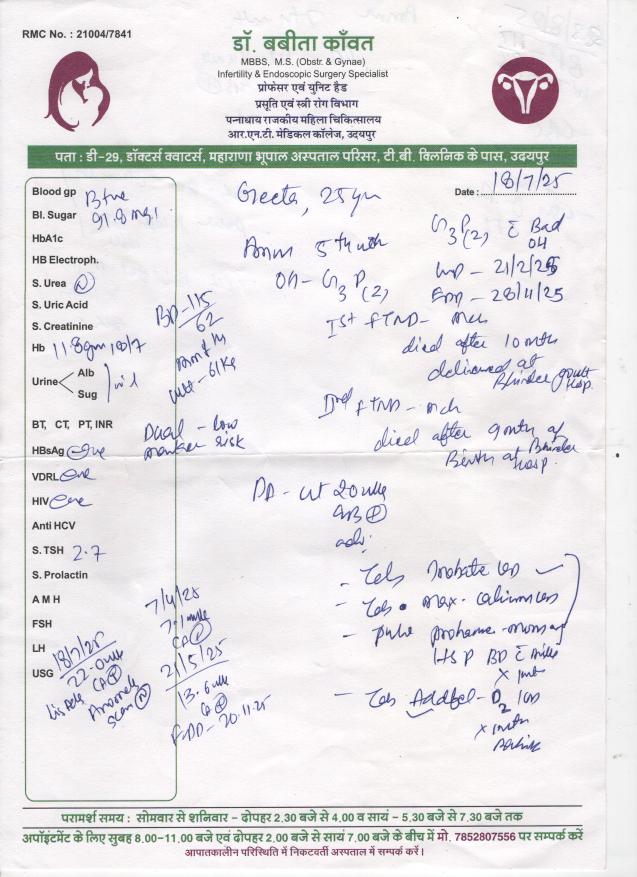 RMC No. : 21004/7841
डॉ. बबीता काँवत
MBBS, M.S. (Obstr. & Gynae)
Infertility & Endoscopic Surgery Specialist
प्रोफेसर एवं युनिट हैड
प्रसूति एवं स्त्री रोग विभाग
पन्नाधाय राजकीय महिला चिकित्सालय
आर.एन.टी. मेडिकल कॉलेज, उदयपुर
पता : डी-29, डॉक्टर्स क्वाटर्स, महाराणा भूपाल अस्पताल परिसर, टी.बी. क्लिनिक के पास, उदयपुर
Date : 18/7/25
Geeta, 25 yr
Blood gp B +ve
Bl. Sugar 91.8 mg.
HbA1c
HB Electroph.
S. Urea N
S. Uric Acid
S. Creatinine
Hb 11.8gm 18/7
Urine Alb Sug nil
BT, CT, PT, INR
HBsAg -ve
VDRL -ve
HIV -ve
Anti HCV
S. TSH 2.7
S. Prolactin
A M H
FSH
LH
USG
18/7/25
22.0 wks
CA
Anomaly
Scan N
7/4/25
7.1 wks
CA
21/5/25
13.6 wks
CA
EDD - 20.11.25
BP - 115/62
wt - 61 Kg
Dual - low
marker risk
5th mth
G3P(2) c Bad
OH
OH - G3P(2)
LMP - 21/2/25
EDD - 28/11/25
Ist FTND - mch
died after 10 mth
delivered at
Bhinder govt
Hosp.
IInd FTND - mch
died after 9 mth of
Birth at Bhinder
Hosp.
PA - ut 20 wks
adv.
- Tab
- Tab. max - calcium
- pulv
HS P BD c milk
- Tab D2
परामर्श समय : सोमवार से शनिवार - दोपहर 2.30 बजे से 4.00 व सायं - 5.30 बजे से 7.30 बजे तक
अपॉइंटमेंट के लिए सुबह 8.00-11.00 बजे एवं दोपहर 2.00 बजे से सायं 7.00 बजे के बीच में मो. 7852807556 पर सम्पर्क करें
आपातकालीन परिस्थिति में निकटवर्ती अस्पताल में सम्पर्क करें।